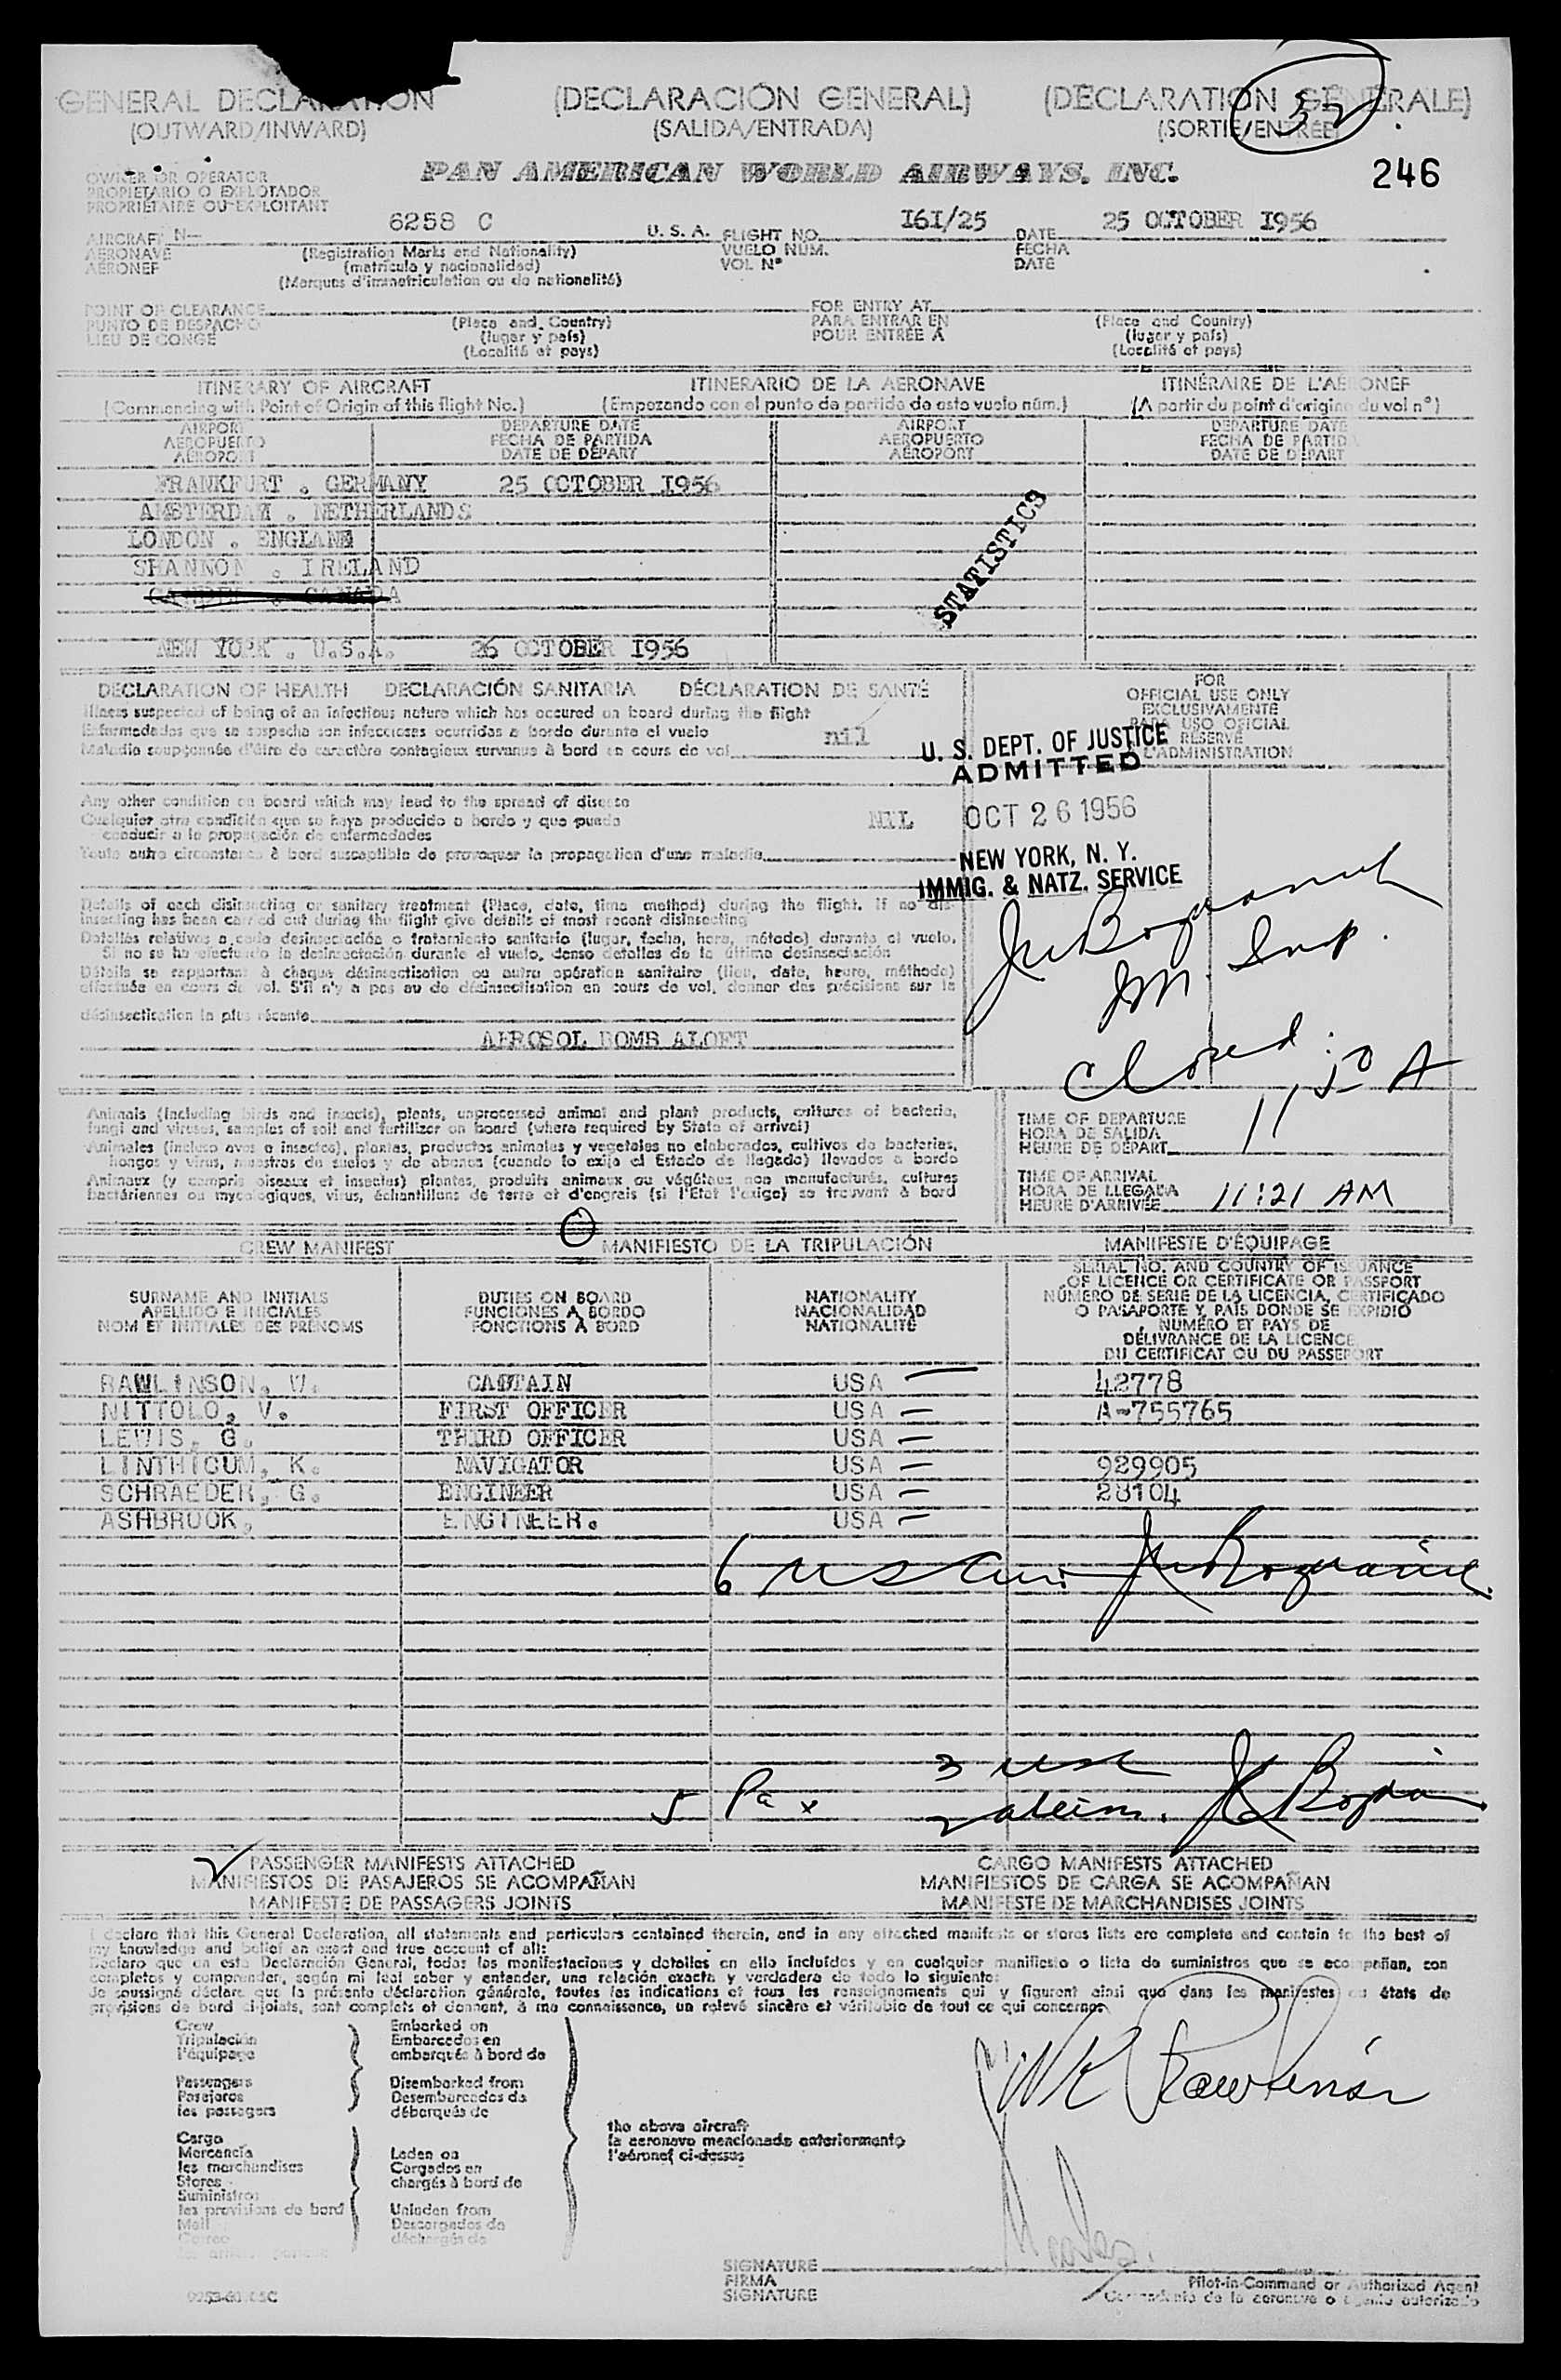 GENERAL DECLARATION (DECLARACIÓN GENERAL) (DÉCLARATION GÉNÉRALE)
(OUTWARD/INWARD) (SALIDA/ENTRADA) (SORTIE/ENTRÉE)
52
246
OWNER OR OPERATOR
PROPIETARIO O EXPLOTADOR
PROPRIÉTAIRE OU EXPLOITANT
PAN AMERICAN WORLD AIRWAYS, INC.
AIRCRAFT N— 6258 C U. S. A. FLIGHT NO. I6I/25 DATE 25 OCTOBER I956
AERONAVE (Registration Marks and Nationality) VUELO NUM. FECHA
AÉRONEF (matrícula y nacionalidad) VOL N° DATE
(Marques d'immatriculation ou de nationalité)
POINT OF CLEARANCE FOR ENTRY AT
PUNTO DE DESPACHO (Place and Country) PARA ENTRAR EN (Place and Country)
LIEU DE CONGÉ (lugar y país) POUR ENTRÉE A (lugar y país)
(Localité et pays) (Localité et pays)
ITINERARY OF AIRCRAFT ITINERARIO DE LA AERONAVE ITINÉRAIRE DE L'AÉRONEF
(Commencing with Point of Origin of this flight No.) (Empezando con el punto de partida de este vuelo núm.) (A partir du point d'origine du vol n°)
AIRPORT DEPARTURE DATE AIRPORT DEPARTURE DATE
AEROPUERTO FECHA DE PARTIDA AEROPUERTO FECHA DE PARTIDA
AÉROPORT DATE DE DÉPART AÉROPORT DATE DE DÉPART
FRANKFURT . GERMANY 25 OCTOBER I956
AMSTERDAM . NETHERLANDS
LONDON . ENGLAND
SHANNON . IRELAND
CANADA
NEW YORK . U.S.A. 26 OCTOBER I956
STATISTICS
DECLARATION OF HEALTH DECLARACIÓN SANITARIA DÉCLARATION DE SANTÉ
Illness suspected of being of an infectious nature which has occured on board during the flight
Enfermedades que se sospecha son infecciosas ocurridas a bordo durante el vuelo
Maladie soupçonnée d'être de caractère contagieux survenue à bord en cours de vol nil
Any other condition on board which may lead to the spread of disease
Cualquier otra condición que se haya producido a bordo y que pueda
conducir a la propagación de enfermedades NIL
Toute autre circonstance à bord susceptible de provoquer la propagation d'une maladie
Details of each disinsecting or sanitary treatment (Place, date, time method) during the flight. If no dis-
insecting has been carried out during the flight give details of most recent disinsecting
Detalles relativos a cada desinsectación o tratamiento sanitario (lugar, fecha, hora, método) durante el vuelo.
Si no se ha efectuado la desinsectación durante el vuelo, dense detalles de la última desinsectación
Détails se rapportant à chaque désinsectisation ou autre opération sanitaire (lieu, date, heure, méthode)
effectuée en cours de vol. S'il n'y a pas eu de désinsectisation en cours de vol, donner des précisions sur la
désinsectisation la plus récente
AEROSOL BOMB ALOFT
FOR
OFFICIAL USE ONLY
EXCLUSIVAMENTE
PARA USO OFICIAL
RÉSERVÉ
L'ADMINISTRATION
U. S. DEPT. OF JUSTICE
ADMITTED
OCT 26 1956
NEW YORK, N. Y.
IMMIG. & NATZ. SERVICE
Im. Insp.
Closed:
11,50 A
Animals (including birds and insects), plants, unprocessed animal and plant products, cultures of bacteria,
fungi and viruses, samples of soil and fertilizer on board (where required by State of arrival)
Animales (incluso aves e insectos), plantas, productos animales y vegetales no elaborados, cultivos de bacterias,
hongos y virus, muestras de suelos y de abonos (cuando lo exija el Estado de llegada) llevados a bordo
Animaux (y compris oiseaux et insectes) plantes, produits animaux ou végétaux non manufacturés, cultures
bactériennes ou mycologiques, virus, échantillons de terre et d'engrais (si l'Etat l'exige) se trouvant à bord
TIME OF DEPARTURE
HORA DE SALIDA
HEURE DE DÉPART
TIME OF ARRIVAL
HORA DE LLEGADA
HEURE D'ARRIVÉE 11:21 AM
CREW MANIFEST MANIFIESTO DE LA TRIPULACIÓN MANIFESTE D'ÉQUIPAGE
SURNAME AND INITIALS DUTIES ON BOARD NATIONALITY SERIAL NO. AND COUNTRY OF ISSUANCE
APELLIDO E INICIALES FUNCIONES A BORDO NACIONALIDAD OF LICENCE OR CERTIFICATE OR PASSPORT
NOM ET INITIALES DES PRÉNOMS FONCTIONS À BORD NATIONALITÉ NÚMERO DE SERIE DE LA LICENCIA, CERTIFICADO
O PASAPORTE Y PAÍS DONDE SE EXPIDIÓ
NUMÉRO ET PAYS DE
DÉLIVRANCE DE LA LICENCE
DU CERTIFICAT OU DU PASSEPORT
RAWLINSON, W. CAPTAIN USA 42778
NITTOLO, V. FIRST OFFICER USA A-755765
LEWIS, G. THIRD OFFICER USA
LINTHICUM, K. NAVIGATOR USA 929905
SCHRAEDER, G. ENGINEER USA 28104
ASHBROOK, ENGINEER. USA
6
3 USC
5 Pax 2 aliens.
PASSENGER MANIFESTS ATTACHED CARGO MANIFESTS ATTACHED
MANIFIESTOS DE PASAJEROS SE ACOMPAÑAN MANIFIESTOS DE CARGA SE ACOMPAÑAN
MANIFESTE DE PASSAGERS JOINTS MANIFESTE DE MARCHANDISES JOINTS
I declare that this General Declaration, all statements and particulars contained therein, and in any attached manifests or stores lists are complete and contain to the best of
my knowledge and belief an exact and true account of all:
Declaro que en esta Declaración General, todas las manifestaciones y detalles en ella incluídos y en cualquier manifiesto o lista de suministros que se acompañan, son
completos y comprenden, según mi leal saber y entender, una relación exacta y verdadera de todo lo siguiente:
Je soussigné déclare que la présente déclaration générale, toutes les indications et tous les renseignements qui y figurent ainsi que dans les manifestes ou états de
provisions de bord ci-joints, sont complets et donnent, à ma connaissance, un relevé sincère et véritable de tout ce qui concerne:
Crew Embarked on
Tripulación Embarcados en
l'équipage embarqués à bord de
Passengers Disembarked from
Pasajeros Desembarcados de
les passagers débarqués de
the above aircraft
la aeronave mencionada anteriormente
l'aéronef ci-dessus
Cargo
Mercancía Laden on
les marchandises Cargados en
Stores chargés à bord de
Suministros
les provisions de bord Unladen from
Mail Descargados de
Correo déchargés de
WK Rawlinson
SIGNATURE
FIRMA Pilot-in-Command or Authorized Agent
SIGNATURE Comandante de la aeronave o agente autorizado